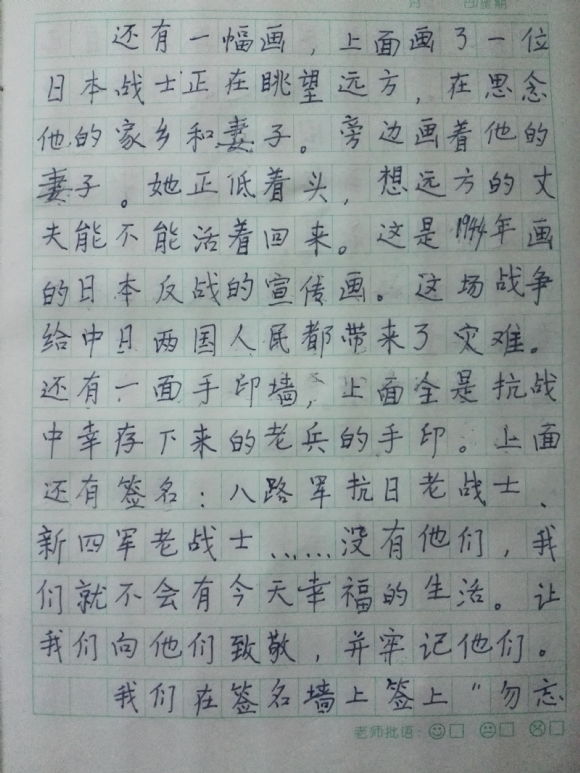 月 日 星期
还有一幅画，上面画了一位
日本战士正在眺望远方，在思念
他的家乡和妻子。旁边画着他的
妻子。她正低着头，想远方的丈
夫能不能活着回来。这是1944年画
的日本反战的宣传画。这场战争
给中日两国人民都带来了灾难。
还有一面手印墙，上面全是抗战
中幸存下来的老兵的手印。上面
还有签名：八路军抗日老战士、
新四军老战士……没有他们，我
们就不会有今天幸福的生活。让
我们向他们致敬，并牢记他们。
我们在签名墙上签上“勿忘
老师批语：